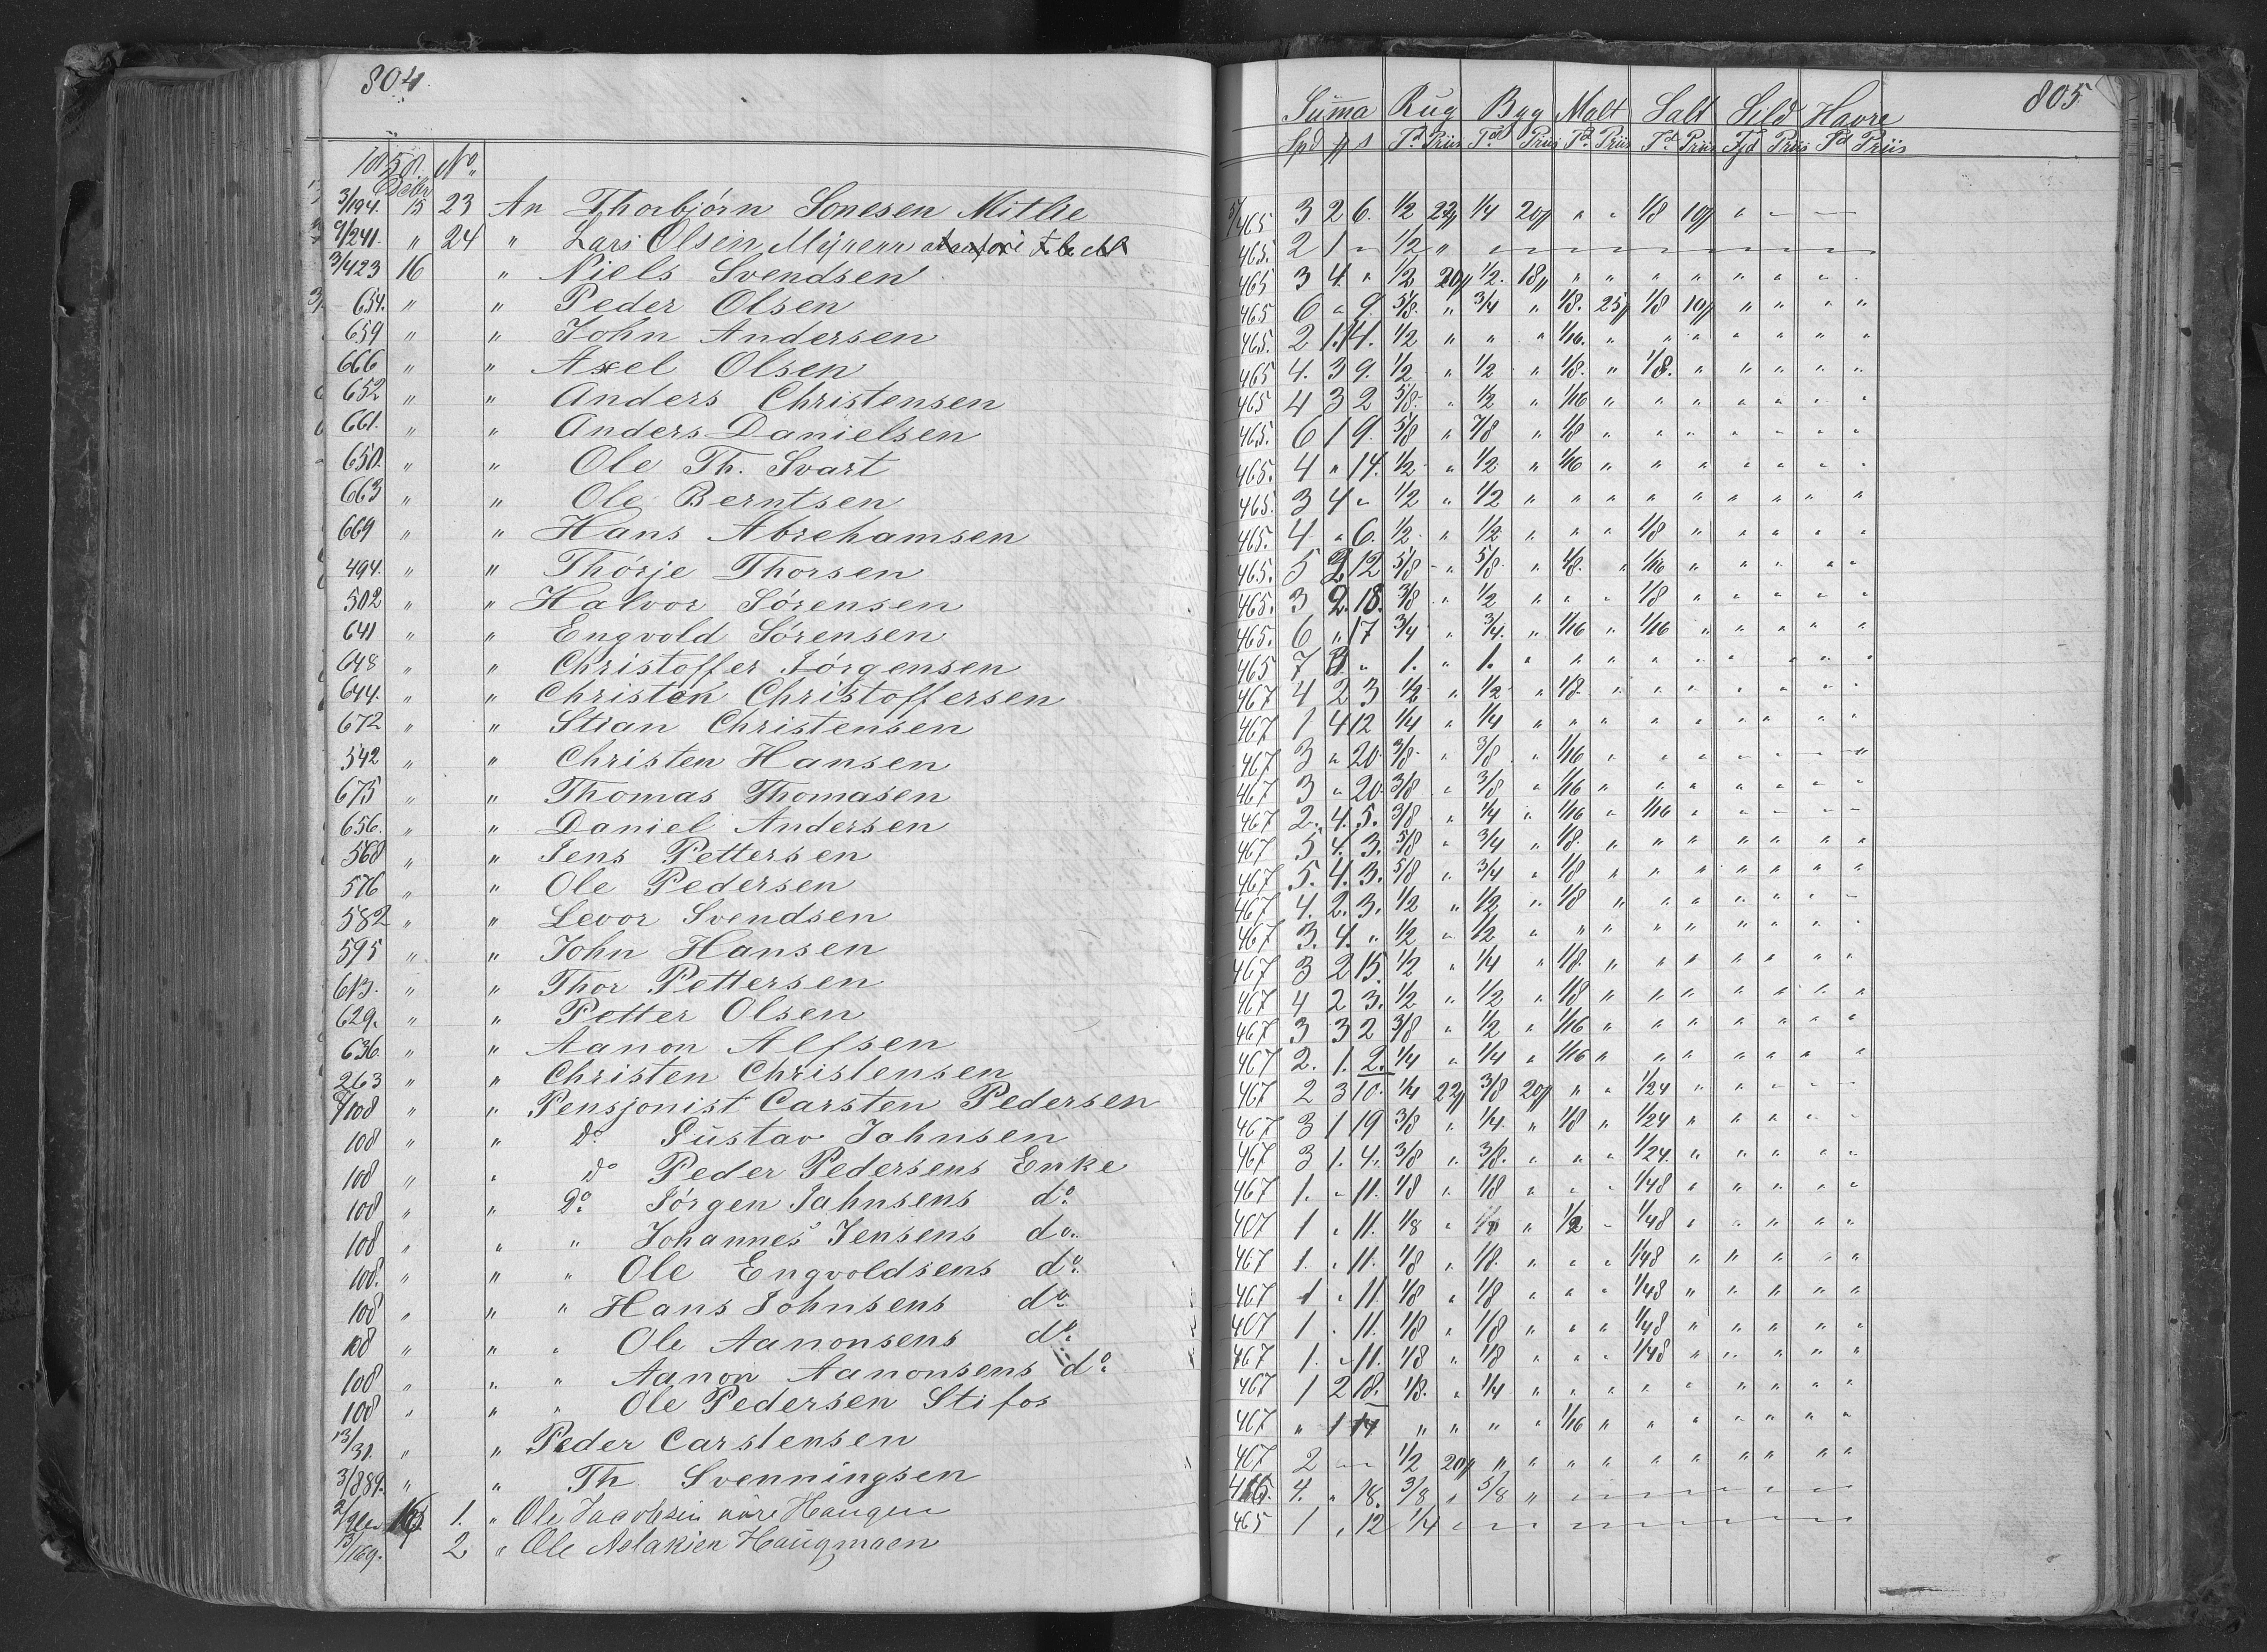 804.
1858 No.
Octbr
3/194. 15 23 An Thorbjörn Sonesen Mitlie
9/241. " 24 " Lars Olsen Myrene
3/423 16 " Niels Svendsen
654. " " Peder Olsen
659 " " John Andersen
666 " " Axel Olsen
652 " " Anders Christensen
661. " " Anders Danielsen
650. " " Ole Th. Svart
663 " " Ole Berntsen
669 " " Hans Abrehamsen
494. " " Thörje Thorsen
502 " " Halvor Sörensen
641 " " Engvold Sörensen
648 " " Christoffer Jörgensen
644. " " Christen Christoffersen
672 " " Stian Christensen
542 " " Christen Hansen
675 " " Thomas Thomasen
656. " " Daniel Andersen
568 " " Jens Pettersen
576 " " Ole Pedersen
582 " " Levor Svendsen
595 " " John Hansen
613. " " Thor Pettersen
629. " " Petter Olsen
636. " " Aanon Alfsen
263 " " Christen Christensen
9/108 " " Pensjonist Carsten Pedersen
108 " " Do Gustav Jahnsen
108 " " do Peder Pedersens Enke
108 " " Do Jörgen Jahnsens do
108 " " " Johannes Jensens do.
108. " " " Ole Engvoldsens do.
108 " " " Hans Johnsens do
108 " " " Ole Aanonsens do.
108 " " " Aanon Aanonsens do.
108 " " " Ole Pedersen Stifos
13/31. " " Peder Carstensen
3/889. " " Th. Svenningsen
1. " Ole Jacobsen Haugen
13/169. 2 " Ole Aslaksen Haugmoen
805
Summa Rug Byg Malt Salt Sild Havre
Spd ß s Td Priis Td Priis Td Priis Td Priis Fjd Priis Td Priis
465 3 2 6. 1/2 22ß 1/4 20ß " " 1/8 19ß " — —
465. 2 1 " 1/2 "
465 3 4. " 1/2 20ß 1/2. 18ß " " " " " " " "
465 6 " 9. 5/8. " 3/4 " 1/8. 25ß 1/8 19ß " " " "
465. 2 1. 14. 1/2 " " " 1/16. " " " " " " "
465 4. 3 9. 1/2 " 1/2 " 1/8. " 1/8. " " " " "
465 4 3 2 5/8. " 1/2 " 1/16 " " " " " " "
465. 6 1 9. 5/8 " 7/8 " 1/8 " " " " " " "
465. 4 " 14. 1/2 " 1/2 " 1/16 " " " " " " "
465. 3 4 " 1/2 " 1/2 " " " " " " " " "
465. 4 " 6. 1/2 " 1/2 " " " 1/8 " " " " "
465. 5 2 12 5/8 " 5/8. " 1/8. " 1/16 " " " " "
465. 3 2. 18. 3/8 " 1/2 " " " 1/8 " " " " "
465. 6 " 17 3/4 " 3/4. " 1/16 " 1/16 " " " " "
465 7 3 " 1. " 1. " " " " " " " " "
467 4 2 3 1/2 " 1/2 " 1/8. " " " " " " "
467 1 4 12 1/4 " 1/4 " " " " " " " " "
467 3 " 20 3/8 " 3/8 " 1/16 " " " " " " "
467 3 " 20 3/8 " 3/8 " 1/16 " " " " " " "
467 2. 4. 5. 3/8 " 1/4 " 1/16 " 1/16 " " " " "
467 5 4. 3. 5/8 " 3/4 " 1/8. " " " " " " "
467 5. 4. 3. 5/8 " 3/4 " 1/8 " " " " " " "
467 4. 2. 3. 1/2 " 1/2 " 1/8 " " " " " " "
467 3. 4. " 1/2 " 1/2 " " " " " " " " "
467 3 2 15 1/2 " 1/4 " 1/8. " " " " " " "
467 4 2 3. 1/2 " 1/2 " 1/8 " " " " " " "
467 3 3 2 3/8 " 1/2 " 1/16 " " " " " " "
467 2. 1. 2. 1/4 " 1/4 " 1/16 " " " " " " "
467 2 3 10. 1/4 22ß 3/8 20ß " " 1/24 " " " " "
467 3 1 19 3/8 " 1/4. " 1/8 " 1/24 " " " " "
467 3 1. 4. 3/8 " 3/8. " " " 1/24. " " " " "
467 1. " 11. 1/8 " 1/8 " " " 1/48 " " " " "
467 1 " 11. 1/8 " 1/8 " 1/2 " 1/48 " " " " "
467 1. " 11. 1/8 " 1/8. " " " 1/48 " " " " "
467 1 " 11 1/8 " 1/8 " " " 1/48 " " " " "
467 1 " 11. 1/8 " 1/8 " " " 1/48 " " " " "
467 1. " 11. 1/8 " 1/8 " " " 1/48 " " " " "
467 1 2 18. 1/8. " 1/4 " " " " " " " " "
467 " 1 14 " " " " 1/16 " " " " " " "
467 2 — — 1/2 20ß " " " " " " " " " "
465. 4. " 18. 3/8 " 5/8 "
465 1 " 12 1/4